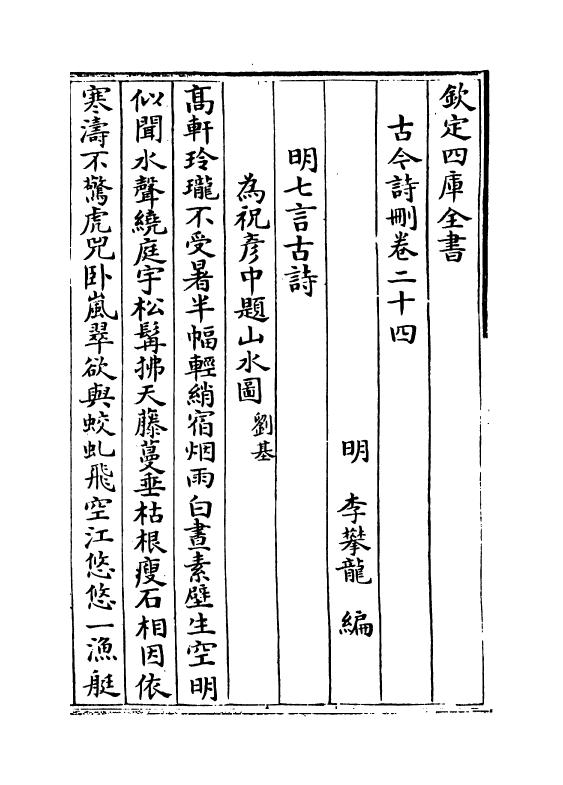 欽定四庫全書
古今詩刪卷二十四
明 李攀龍 編
明七言古詩
為祝彥中題山水圖 劉基
髙軒玲瓏不受暑半幅輕綃宿烟雨白晝素壁生空明
似聞水聲繞庭宇松髯拂天藤蔓垂枯根瘦石相因依
寒濤不驚虎兕卧嵐翠欲與蛟虬飛空江悠悠一漁艇